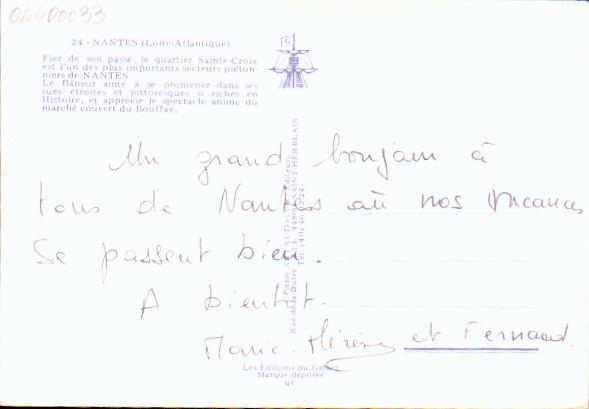 04400033
24 - NANTES (Loire-Atlantique)
Fier de son passé, le quartier Sainte-Croix
est l'un des plus importants secteurs piéton-
niers de NANTES.
Le flâneur aime à se promener dans ses
rues étroites et pittoresques si riches en
Histoire, et apprécie le spectacle animé du
marché couvert du Bouffay.
Un grand bonjour à
tous de Nantes où nos vacances
se passent bien.
A bientôt.
Marie-Thérèse et Fernand.
Les Editions du
Marque déposée